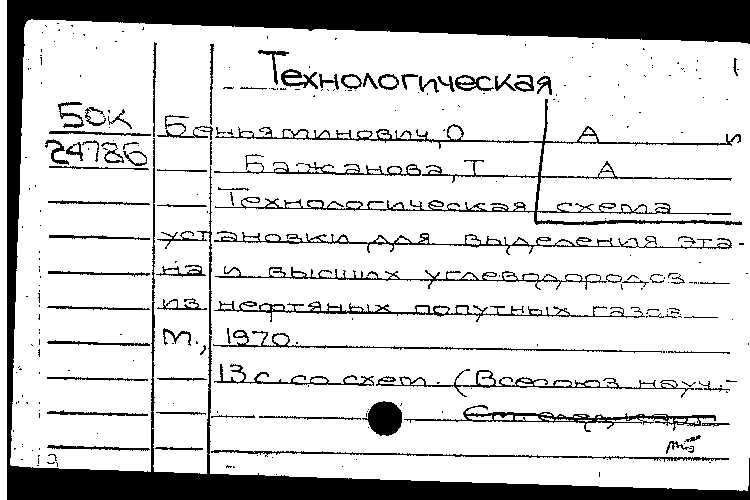 Технологическая
БОК Беньяминович, О А и
24786 Бажанова, Т А
Технологическая схема
установки для выделения эта-
на и высших углеводородов
из нефтяных попутных газов
М., 1970.
13 с. со схем. (Всесоюз науч.-
См. след. карт